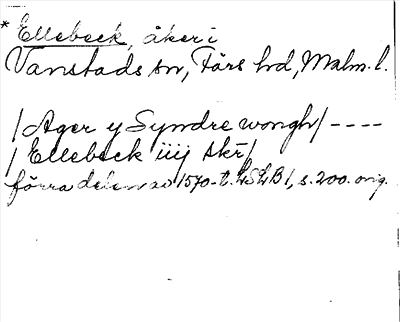 * Ellebeck, åker i
Vanstads sn, Färs hd, Malm. l.
/Ager y Syndre wongh/ ----
/Ellebeck iiij skr̄/
förra delen av 1570-t. LSLB 1, s. 200. orig.